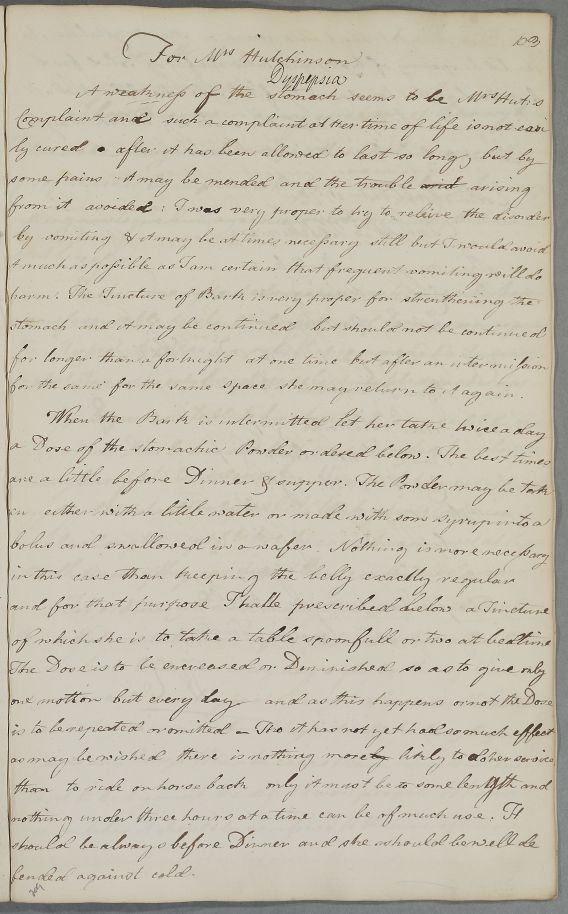 103
For Mrs Hutchinson
Dyspepsia
A weakness of the stomach seems to be Mrs Hut:s
Complaint and such a complaint at Her time of life is not easi
ly cured after it has been allowed to last so long, but by
some pains it may be mended and the trouble and arising
from it avoided: I was very proper to try to relieve the disorder
by vomiting & it may be at times necessary still but I would avoid
it much as possible as I am certain that frequent vomiting will do
harm. The Tincture of Bark is very proper for strenthening the
stomach and it may be continued but should not be continued
for longer than a fortnight at one time but after an intermission
for the same for the same space she may return to it again.
When the Bark is intermitted let her take twice a day
a Dose of the stomachic Powder ordered below. The best times
are a little before Dinner & supper. The Powder may be tak
en either with a little water or made with som syrup into a
bolus and swallowed in a wafer. Nothing is more necessary
in this case than keeping the belly exactly regular
and for that purpose I have prescribed below a Tincture
of which she is to take a table spoonfull or two at bedtime
The Dose is to be encreased or Diminished so as to give only
one motion but every day and as this happens or not the Dose
is to be repeated or omitted – Tho it has not yet had so much effect
as may be wished there is nothing more likely to do her service
than to ride on horse back only it must be to some length and
nothing under three hours at a time can be of much use. It
should be always before Dinner and she should be well de
fended against cold.